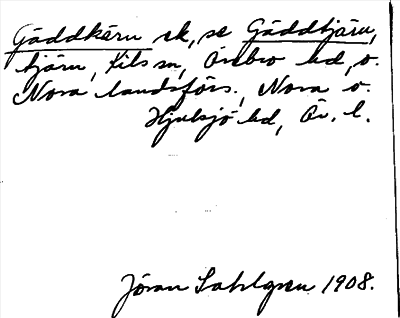 Gäddkärn sk, se Gäddtjärn,
tjärn, Kils sn, Örebro hd, o.
Nora landsförs., Nora o.
Hjulsjö hd, Ör. l.
Jöran Sahlgren 1908.